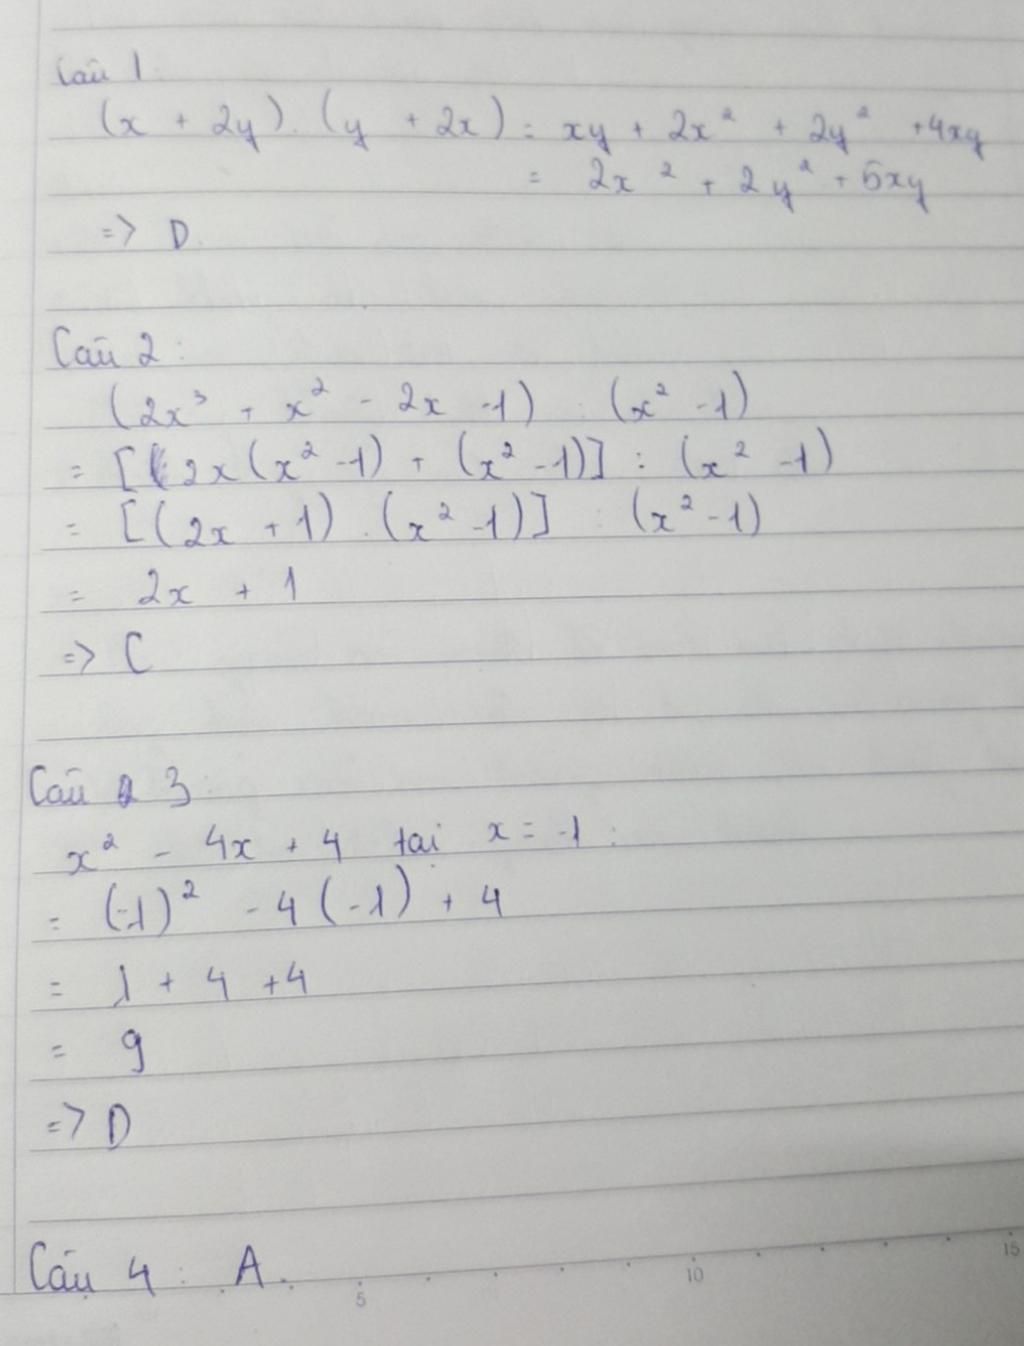 Câu 1
(x + 2y).(y + 2x) = xy + 2x² + 2y² + 4xy
= 2x² + 2y² + 5xy
=> D.
Câu 2:
(2x³ + x² - 2x - 1) : (x² - 1)
= [2x(x² - 1) + (x² - 1)] : (x² - 1)
= [(2x + 1).(x² - 1)] : (x² - 1)
= 2x + 1
=> C
Câu 3:
x² - 4x + 4 tại x = -1:
= (-1)² - 4(-1) + 4
= 1 + 4 + 4
= 9
=> D
Câu 4: A.
5 10 15